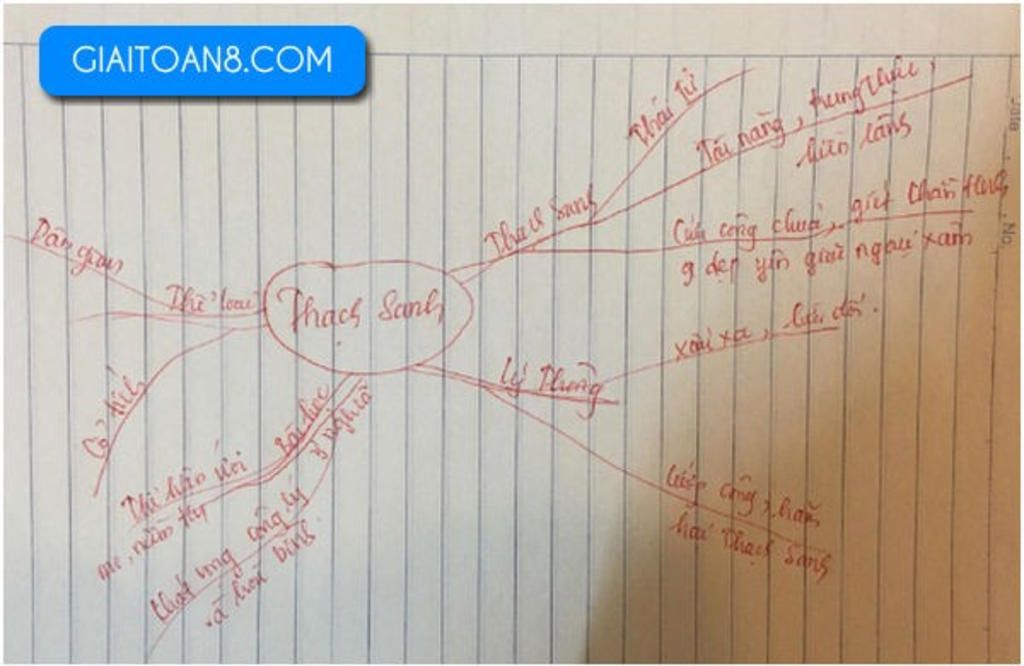 GIAITOAN8.COM
Thạch Sanh
Thạch Sanh
Thái tử
Tài năng, trung thực,
hiền lành
Cứu công chúa, giết
g dẹp yên giặc ngoại xâm
Lý Thông
xấu xa, lừa dối.
cướp công, hãm
hại Thạch Sanh
Thể loại
Dân gian
Cổ tích
Bài học
ý nghĩa
Thể hiện ước
mơ, niềm tin
công lý
hoà bình